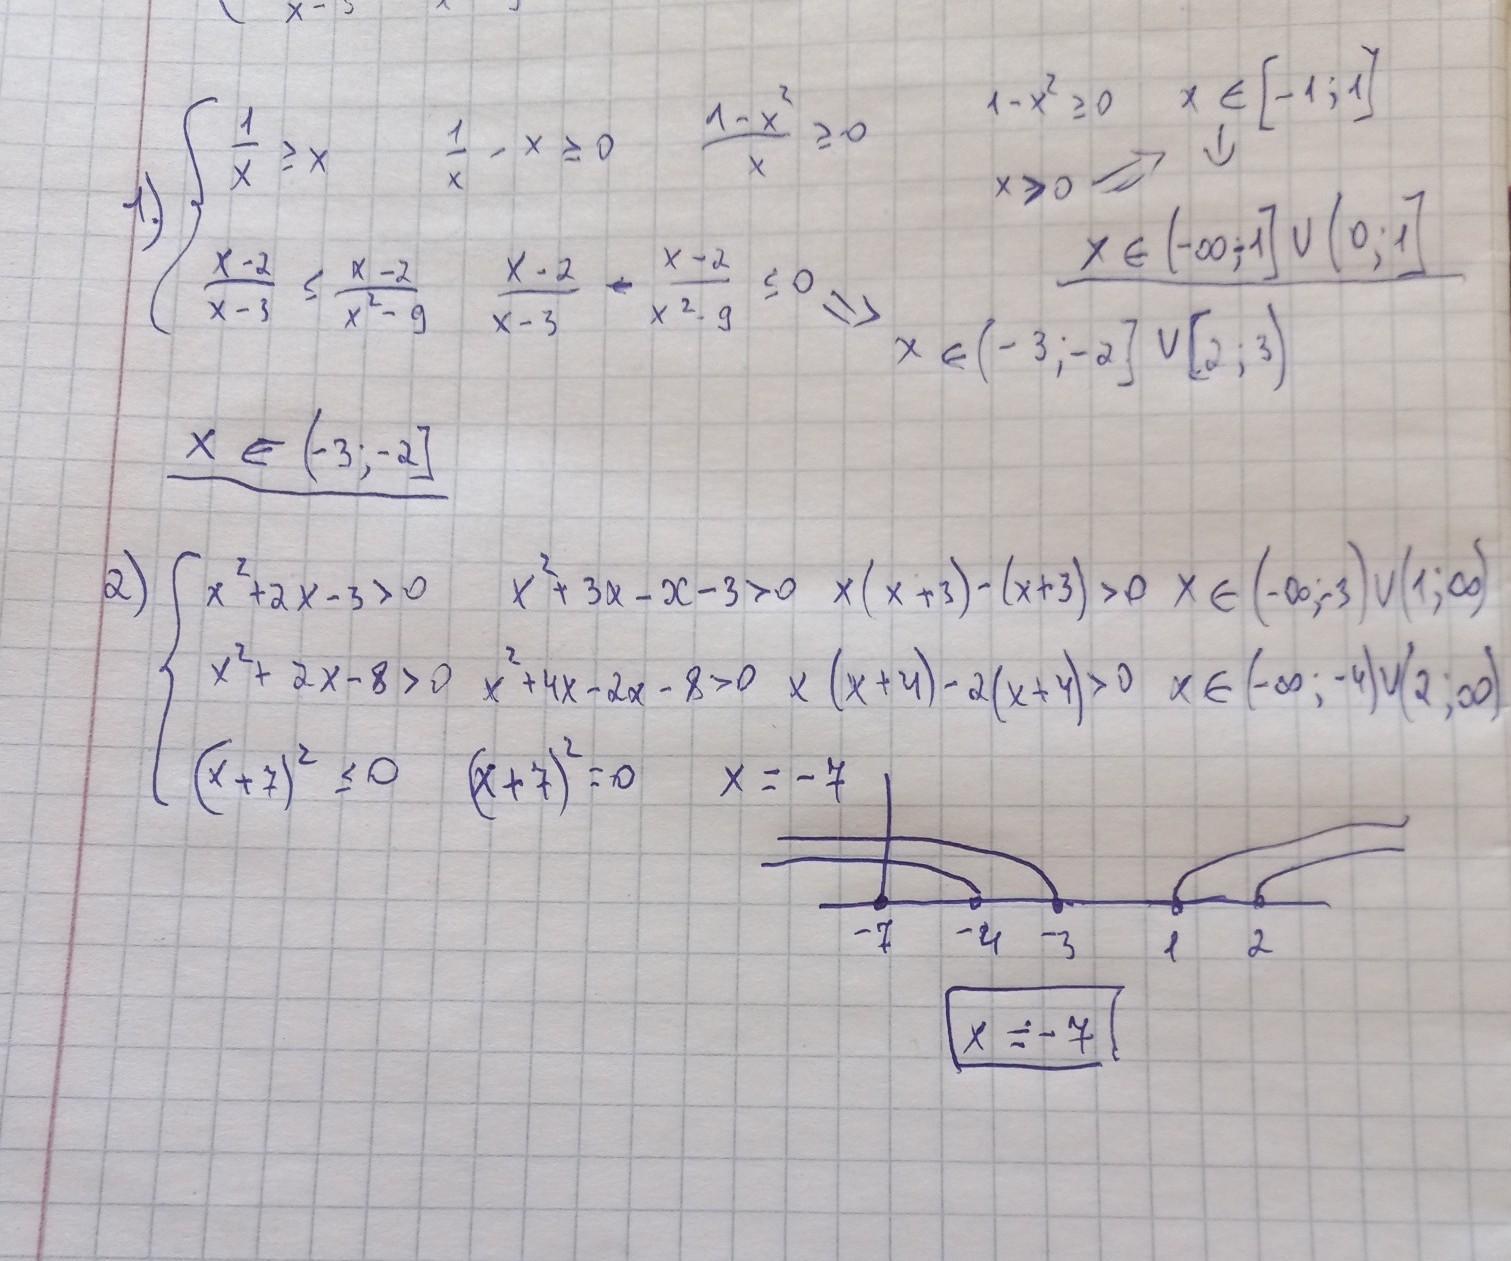 x-3
1) { 1/x ≥ x   1/x - x ≥ 0   (1-x²)/x ≥ 0   1-x² ≥ 0   x ∈ [-1;1]
x ≥ 0 ⇒ ⇓
x ∈ (-∞;-1] ∪ (0;1]
(x-2)/(x-3) ≤ (x-2)/(x²-9)   (x-2)/(x-3) - (x-2)/(x²-9) ≤ 0 ⇒
x ∈ (-3;-2] ∪ [2;3)
x ∈ (-3;-2]
2) { x²+2x-3>0   x²+3x-x-3>0   x(x+3)-(x+3)>0   x ∈ (-∞;-3) ∪ (1;∞)
x²+2x-8>0   x²+4x-2x-8>0   x(x+4)-2(x+4)>0   x ∈ (-∞;-4) ∪ (2;∞)
(x+7)² ≤ 0   (x+7)² = 0   x = -7
-7 -4 -3 1 2
x = -7